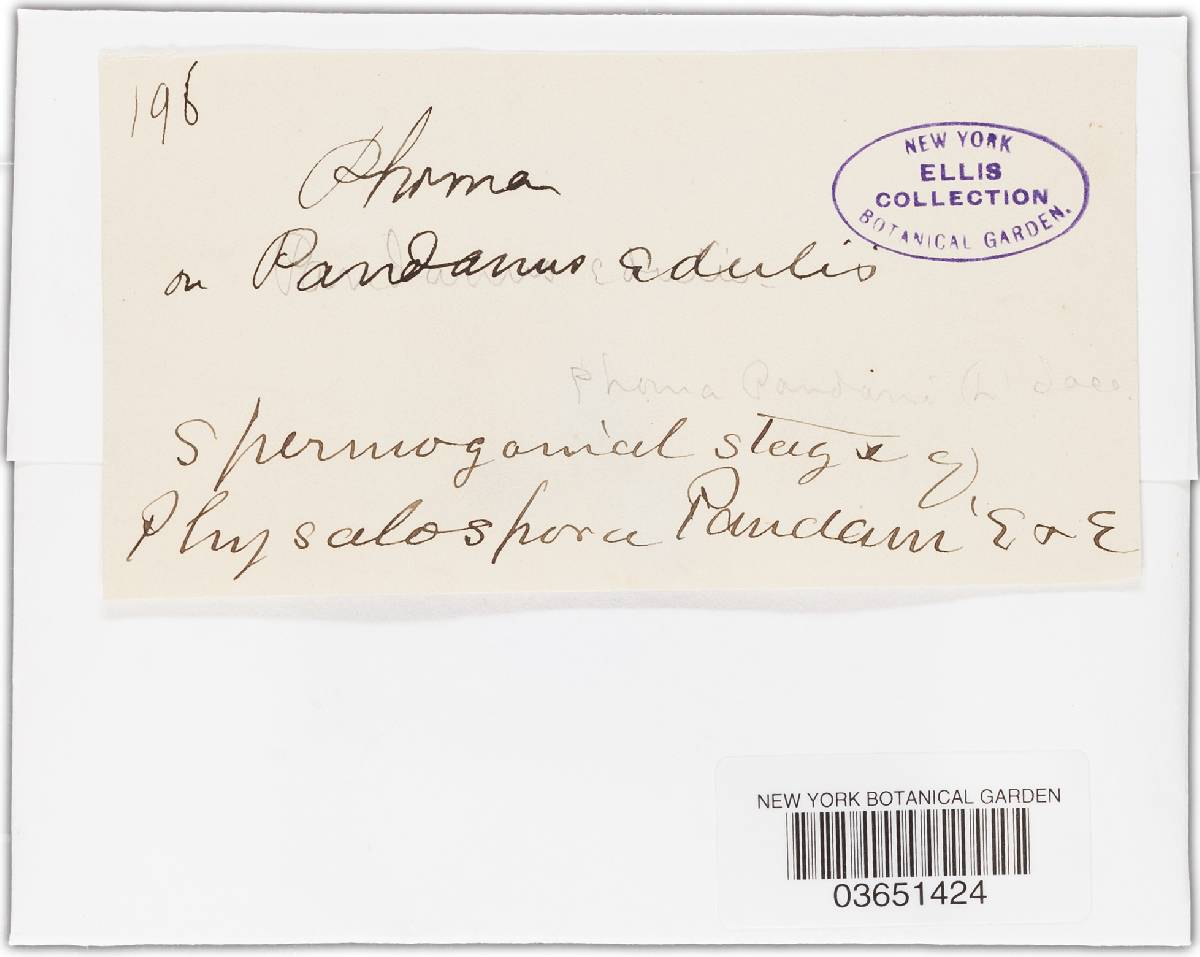 196
NEW YORK
ELLIS
COLLECTION
BOTANICAL GARDEN.
Phoma
on Pandanus edulis
Phoma Pandani
Spermogonial stage of
Physalospora Pandani E & E
NEW YORK BOTANICAL GARDEN
03651424